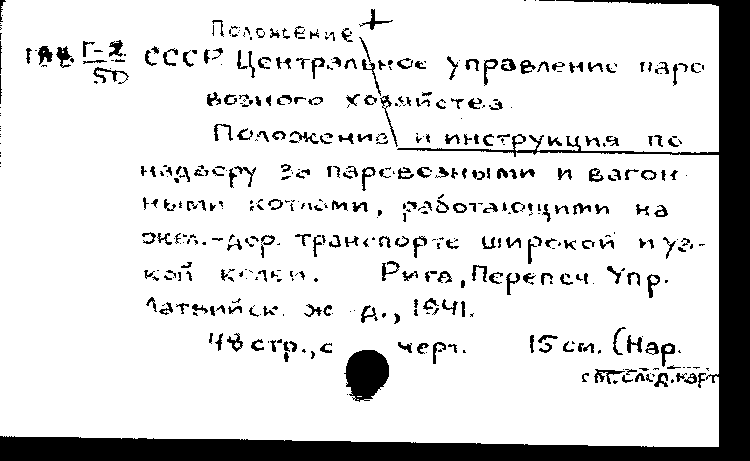 Положение
Г-2
50
СССР. Центральное управление паро
возного хозяйства.
Положение и инструкция по
надзору за паровозными и вагон-
ными котлами, работающими на
жел.-дор. транспорте широкой и уз-
кой колеи. Рига, Перепеч. Упр.
Латвийск. ж-д., 1941.
48 стр., с черт. 15 см. (Нар.
см. след. карт